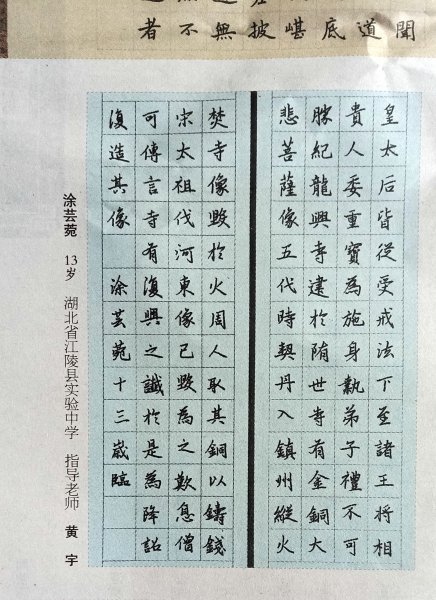 聞道底嵁披無不者
皇太后皆從受戒法下至諸王將相
貴人委重寶為施身執弟子禮不可
勝紀龍興寺建於隋世寺有金銅大
悲菩薩像五代時契丹入鎮州縱火
焚寺像毀於火周人取其銅以鑄錢
宋太祖伐河東像已毀為之歎息僧
可傳言寺有復興之讖於是為降詔
復造其像 涂芸菀十三歲臨
涂芸菀 13岁 湖北省江陵县实验中学 指导老师 黄宇